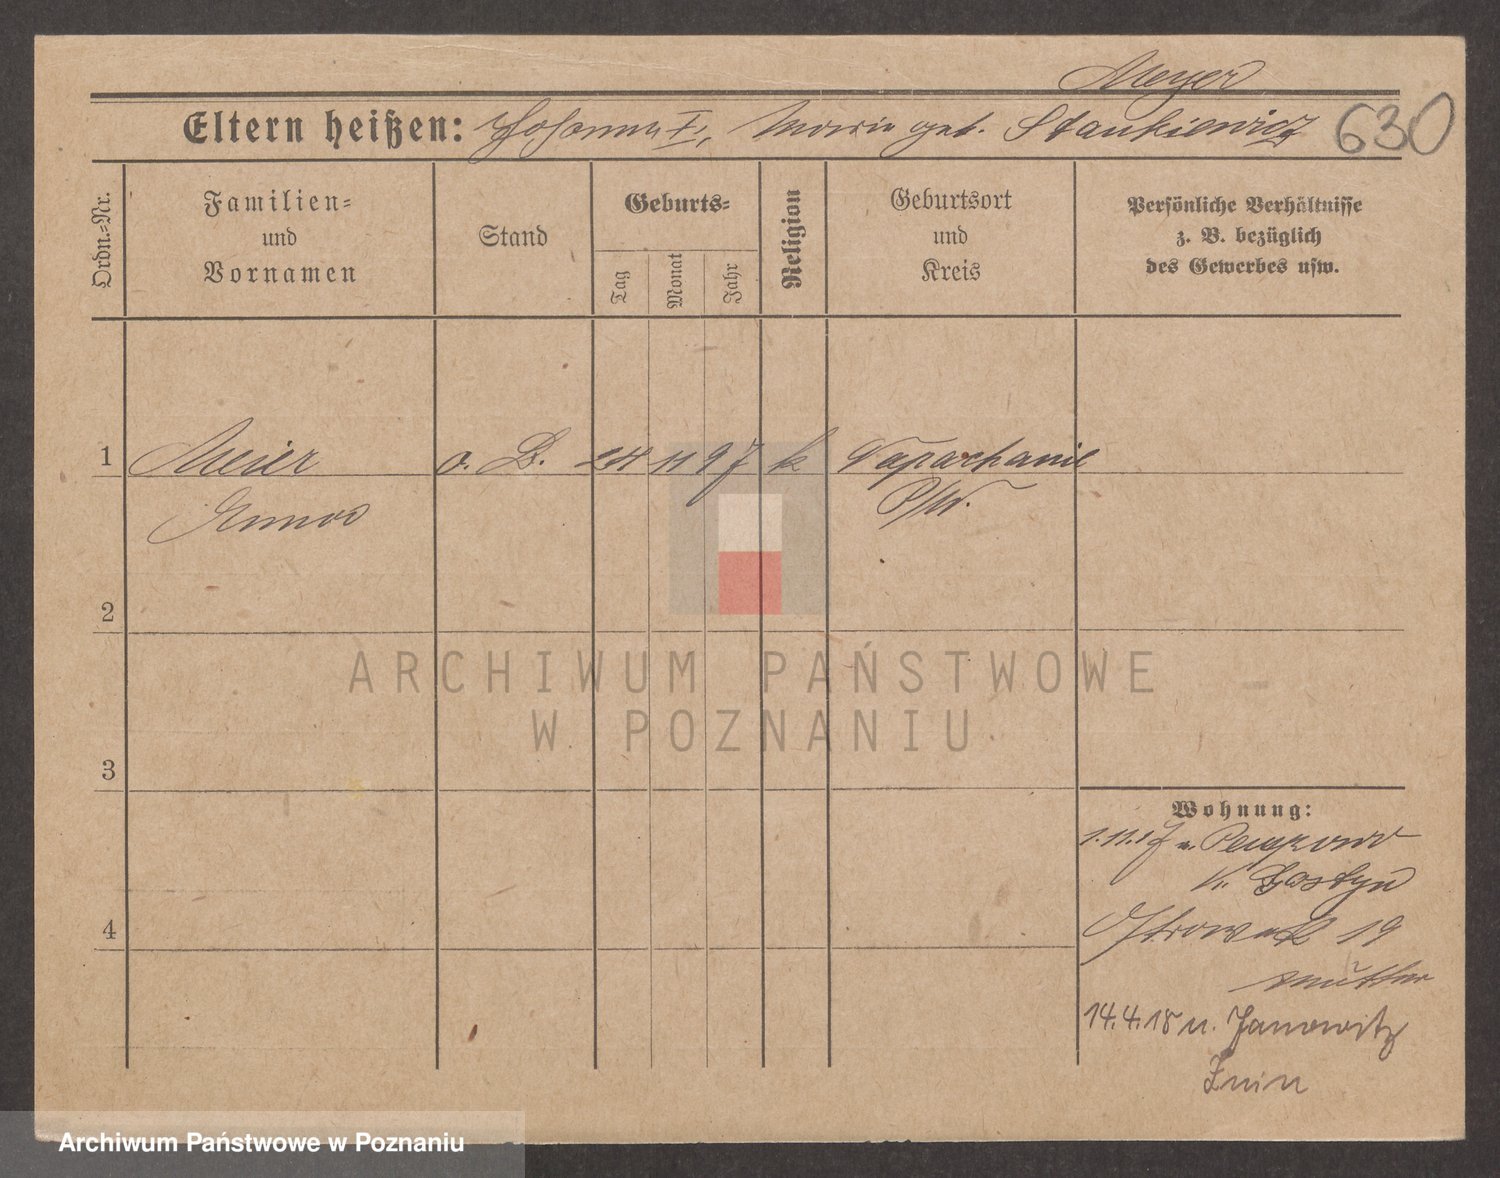 Meyer
Eltern heißen: Johann I, Maria geb. Stankiewicz 630
Ordn.-Nr.
Familien- und Vornamen
Stand
Geburts-
Tag
Monat
Jahr
Religion
Geburtsort und Kreis
Persönliche Verhältnisse z. B. bezüglich des Gewerbes usw.
1 Meier o. B. 24 11 97 k
P/W.
2
3
4
Wohnung:
1.11.17 n. Pempowo
K. Gostyn
19
Mutter
14.4.18 n. Janowitz
Znin
ARCHIWUM PAŃSTWOWE
W POZNANIU
Archiwum Państwowe w Poznaniu